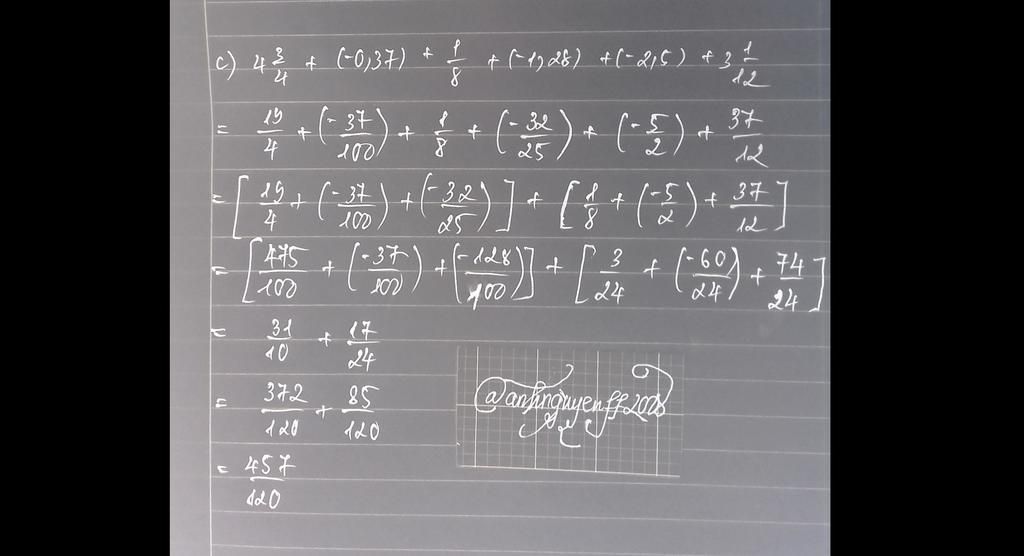 c) 4 3/4 + (-0,37) + 1/8 + (-1,28) + (-2,5) + 3 1/12
= 19/4 + (-37/100) + 1/8 + (-32/25) + (-5/2) + 37/12
= [19/4 + (-37/100) + (-32/25)] + [1/8 + (-5/2) + 37/12]
= [475/100 + (-37/100) + (-128/100)] + [3/24 + (-60/24) + 74/24]
= 31/10 + 17/24
= 372/120 + 85/120
= 457/120